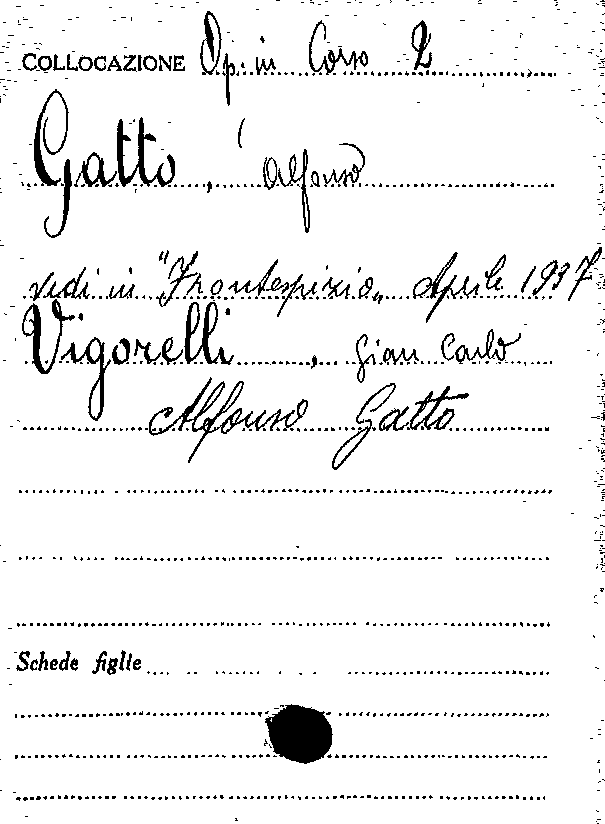 COLLOCAZIONE Op. in Corso 2
Gatto, Alfonso
vedi in "Frontespizio„ Aprile 1937
Vigorelli, Gian Carlo
Alfonso Gatto
Schede figlie